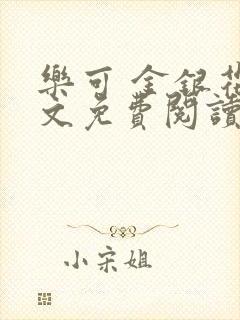 樂可 金銀花
文免費閱讀
小宋姐